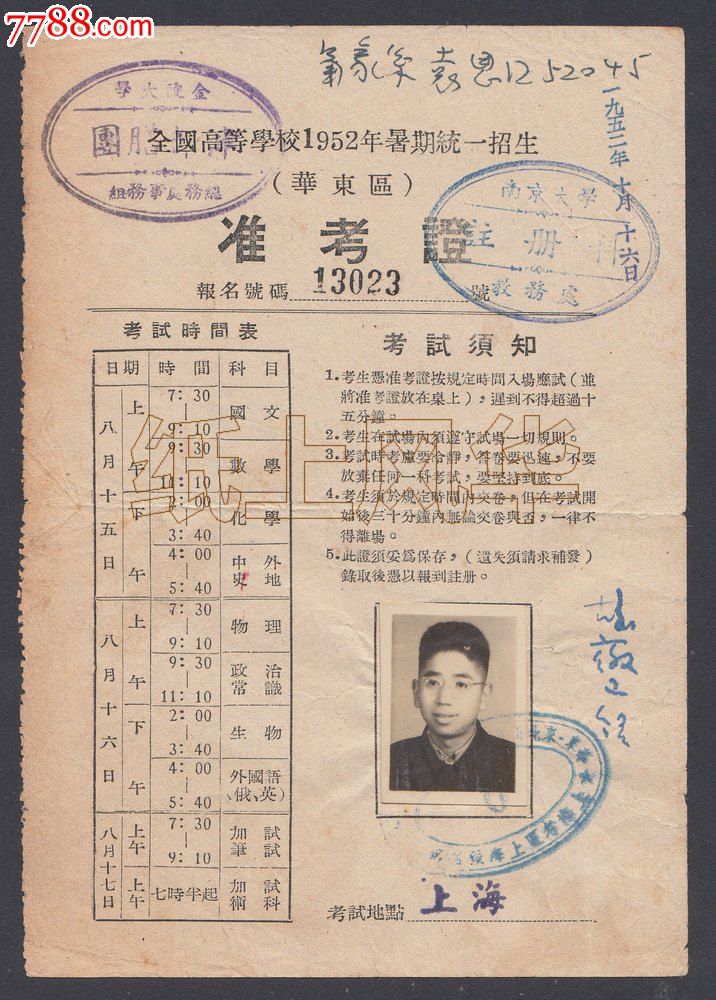 7788.com
袁恩 52045
一九五二年十月十六日
金陵大學
團
總務處事務組
全國高等學校1952年暑期統一招生
(華東區)
准考證
南京大學
註册組
教務處
報名號碼 13023 號
考試時間表
日期 時間 科目
八月十五日 上午 7:30—9:10 國文
9:30—11:10 數學
下午 2:00—3:40 化學
4:00—5:40 中外史地
八月十六日 上午 7:30—9:10 物理
9:30—11:10 政治常識
下午 2:00—3:40 生物
4:00—5:40 外國語(俄、英)
八月十七日 上午 7:30—9:10 加試筆試
上午 七時半起 加試術科
考試須知
1.考生憑准考證按規定時間入場應試(並
將准考證放在桌上),遲到不得超過十
五分鐘。
2.考生在試場內須遵守試場一切規則。
3.考試時考慮要冷靜,答卷要迅速,不要
放棄任何一科考試,要堅持到底。
4.考生須於規定時間內交卷,但在考試開
始後三十分鐘內無論交卷與否,一律不
得離場。
5.此證須妥為保存,(遺失須請求補發)
錄取後憑以報到註册。
考試地點 上海